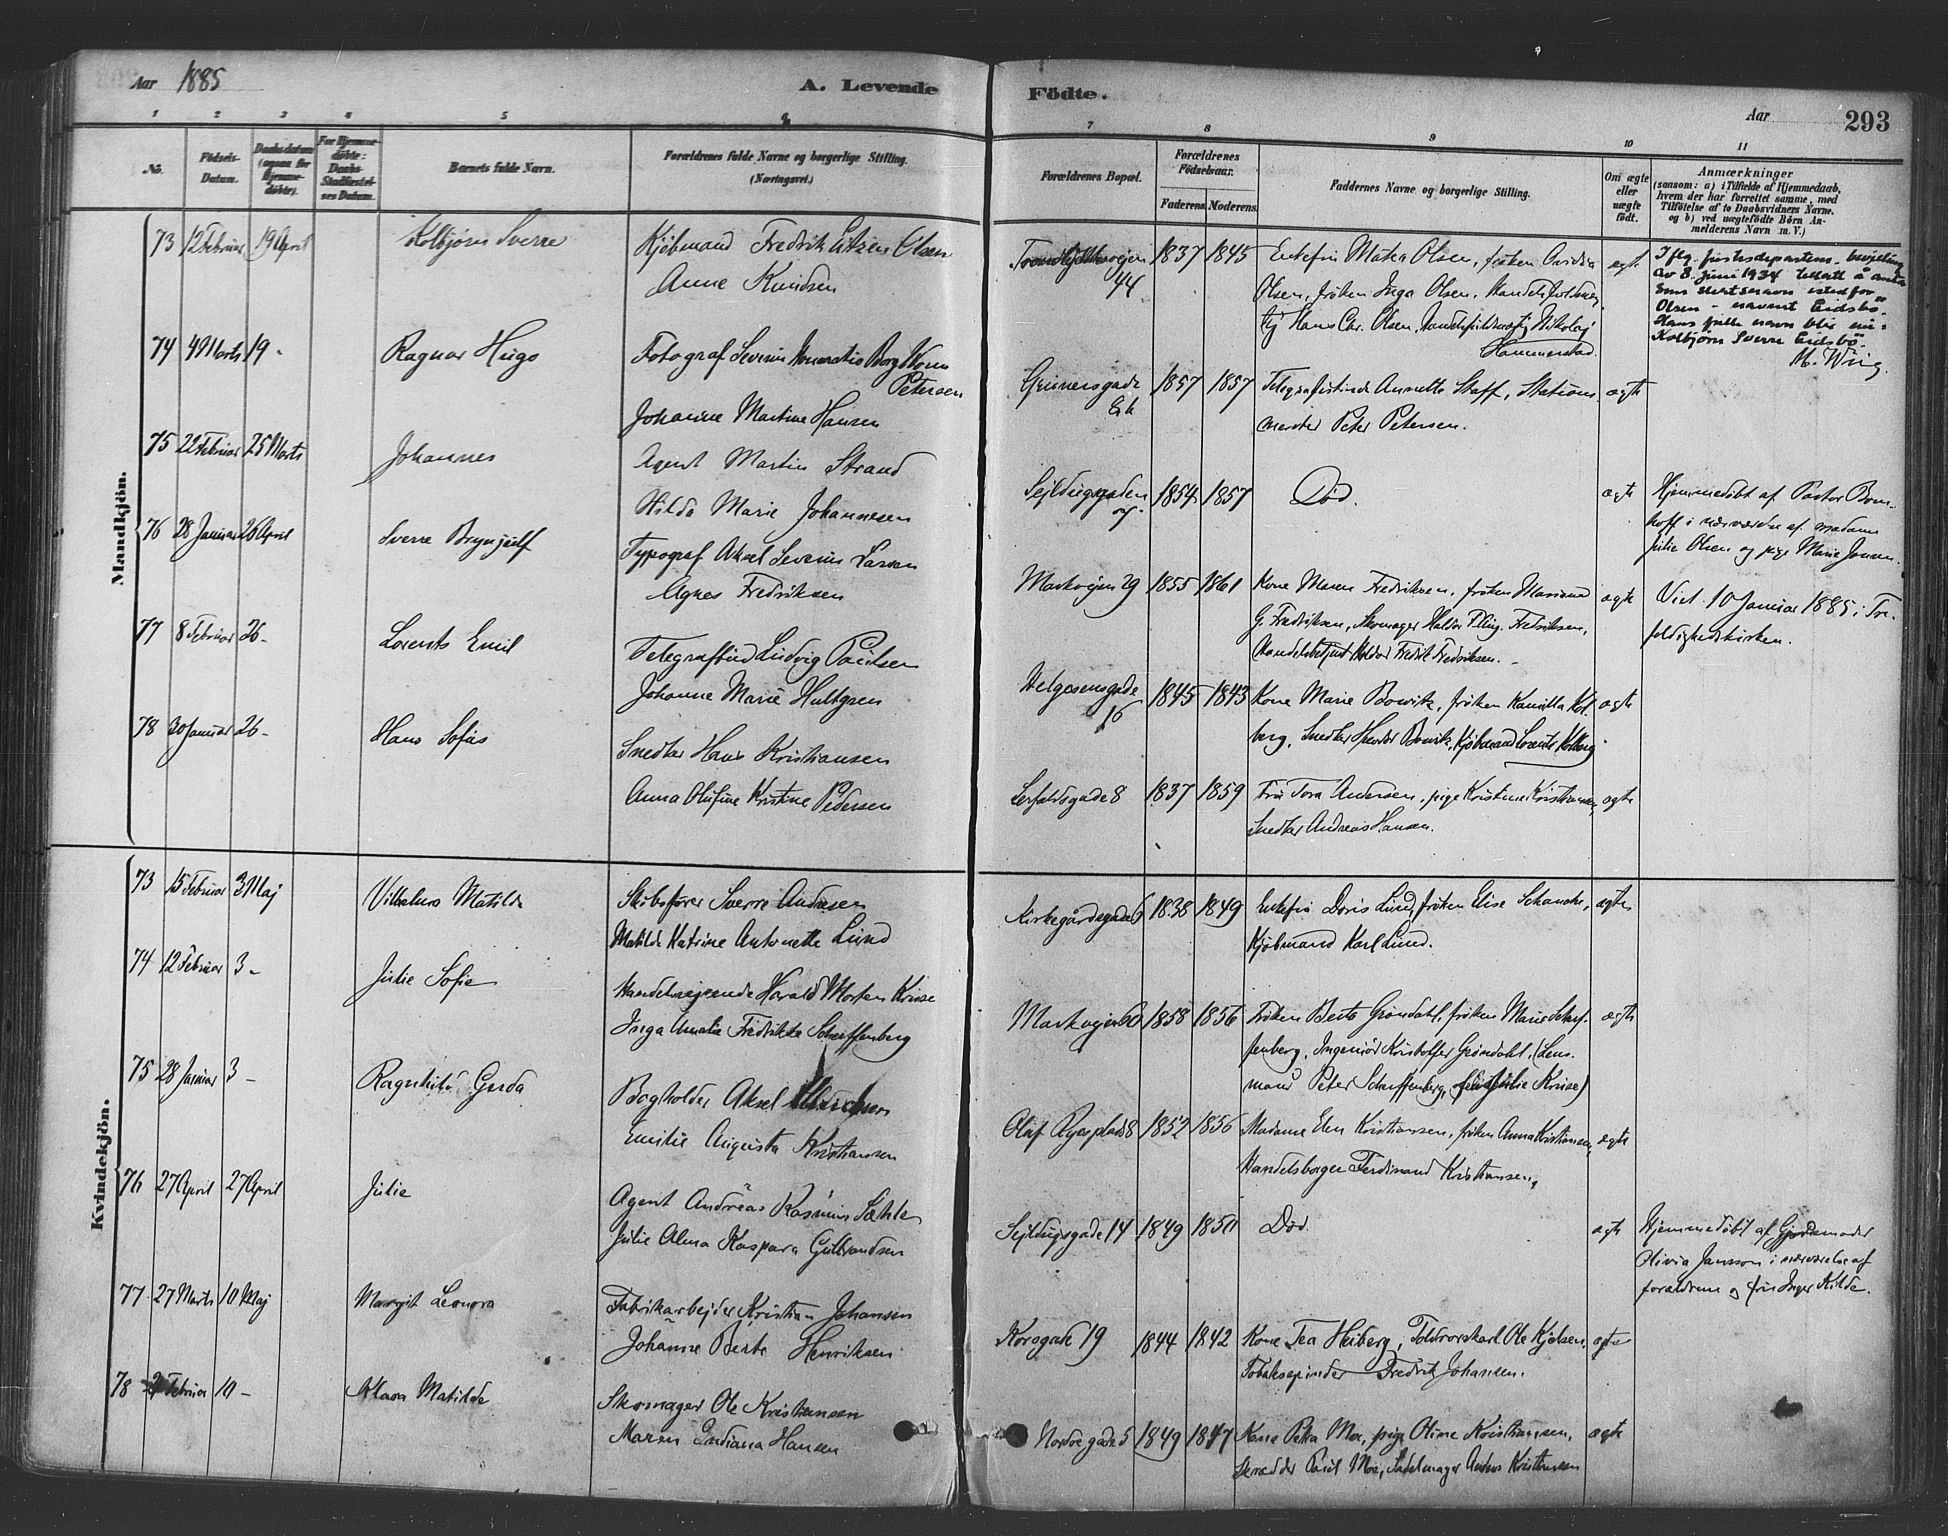 Aar 1885
A. Levende
Födte.
Aar
293
1 2 3 4 5 6
7 8 9 10 11
No.
Födsels-
Datum.
Daabsdatum
(ogsaa for
Hjemme-
døbte).
For Hjemme-
døbte:
Daabs-
Stadfæstel-
ses Datum.
Barnets fulde Navn.
Forældrenes fulde Navne og borgerlige Stilling.
(Næringsvei.)
Forældrenes Bopæl.
Forældrenes
Födselsaar.
Faderens. Moderens.
Faddernes Navne og borgerlige Stilling.
Om ægte
eller
uægte
födt.
Anmærkninger
(saasom: a) i Tilfælde af Hjemmedaab,
hvem der har forrettet samme, med
Tilföielse af to Daabsvidners Navne.
og b) ved uægtefödte Börn An-
melderens Navn m. V.)
Mandkjön.
73 12 Februar 19 April Kolbjörn Sverre Kjöbmand Fredrik Olsen
Anne Knudsen
44 1837 1845 Enkefru Olsen, fröken
Olsen, fröken Inga Olsen,
Hans Chr. Olsen, Nikolaj
Hammerstad.
ægte
Iflg. justisdepartem. bevilling
av 8. juni 1934 tillatt å anta
som slektsnavn istedfor
Olsen - navnet Eidsbö.
Hans fulle navn blir nu:
Kolbjörn Sverre Eidsbö.
74 4 Marts 19 - Ragnar Hugo Fotograf Severin Borg
Petersen
Johanne Martine Hansen
1857 1857 Telegrafistinde Annette Staff, Stations-
mester Peter Petersen.
ægte
75 22 Februar 25 Marts Johannes Agent Martin Strand
Hilda Marie Johannesen
1854 1857 Död.
ægte
Hjemmedöbt af Pastor
i nærværelse af madame
Julie Olsen og pige Marie
76 28 Januar 26 April Sverre Brynjulf Typograf Aksel Severin Larsen
Agnes Fredriksen
Markvejen 29 1855 1861 Kone Maren Fredriksen, fröken
G. Fredriksen, Skomager Fredriksen,
Handelsbetjent Fredriksen.
ægte
Viet 10 Januar 1885 i Tre-
foldighedskirken.
77 8 Februar 26 - Lorents Emil Ludvig Paulsen
Johanne Marie Hultgren
Helgesensgade
16 1845 1843 Kone Marie fröken Kamilla Kol-
berg, Snedker Kjöbmand Lorents Kolberg.
ægte
78 30 Januar 26 - Hans Sofus Snedker Hans Kristiansen
Anna Olufine Kristine Pedersen
8 1837 1859 Fru Tora Andersen, pige Kristine Kristiansen,
Snedker Andreas Hansen.
ægte
Kvindekjön.
73 15 Februar 3 Maj Matilde Skibsförer Sverre Andresen
Matilde Katrine Antonette Lund
Kirkegårdsgade 6 1838 1849 Enkefru Doris Lund, fröken Elise Schanche,
Kjöbmand Karl Lund.
ægte
74 12 Februar 3 - Julie Sofie Handelsrejsende Harald Morten Kruse
Inga Amalie Fredrikke Scharffenberg
Markvejen 60 1858 1856 Fröken Gröndahl, fröken Marie Scharf-
fenberg, Ingeniör Kristoffer Gröndahl, (Lens-
mand Peter Scharffenberg, Julie Kruse)
ægte
75 28 Januar 3 - Ragnhild Gerda Bogholder Aksel
Emilie Augusta Kristiansen
Olaf Ryesplads 8 1852 1856 Madame Elen Kristiansen, fröken Anna Kristiansen,
Handelsborger Ferdinand Kristiansen,
ægte
76 27 April 27 April Julie Agent Andreas Rasmus Sæhle
Julie Alma Kaspara Gulbrandsen
Sejldugsgade 14 1849 1850 Död
ægte
Hjemmedöbt af Gjordemoder
Olivia Jansson i nærværelse af
forældrene og fru Inger Kilde.
77 27 Marts 10 Maj Margit Leonora Fabrikarbejder Kristian Johansen
Johanne Berte Henriksen
Korsgade 19 1844 1842 Kone Tea Heiberg, Ole Kjölsen,
Tobakspinder Fredrik Johansen.
ægte
78 Februar 10 - Klara Matilde Skomager Ole Kristiansen
Maren Indiana Hansen
5 1849 1847 Kone Petra Moe, pige Oline Kristiansen,
Skrædder Paul Moe, Sadelmager Anders Kristiansen
ægte